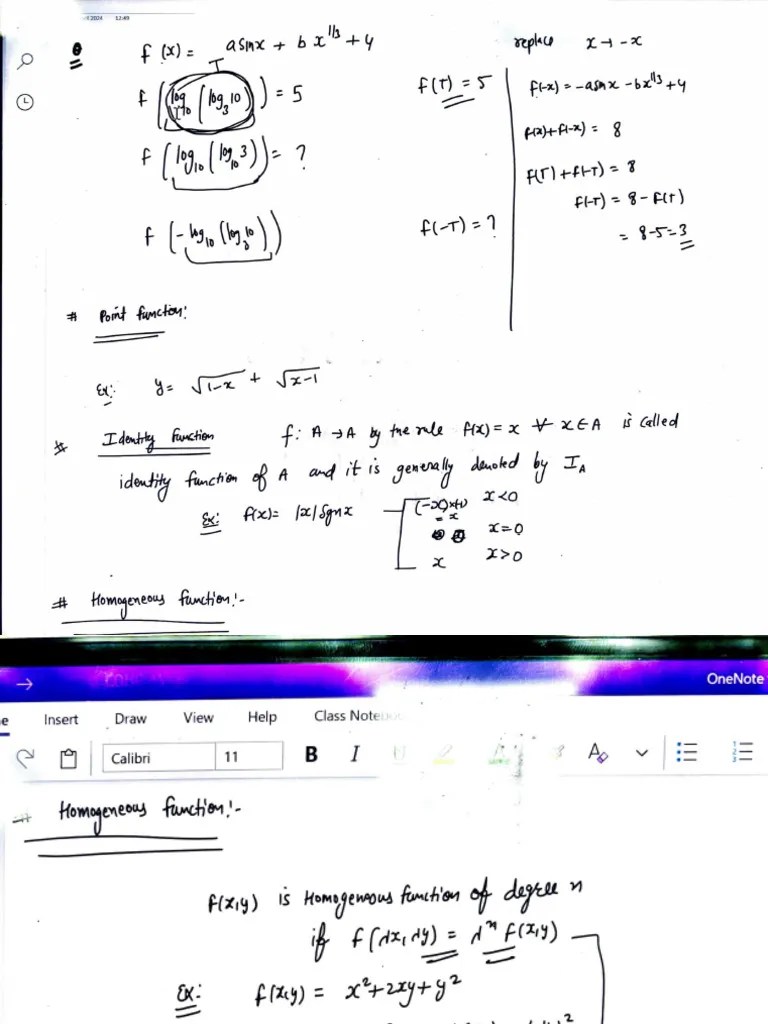 2024 12:49
f(x) = a sinx + b x^{1/3} + 4
replace x → -x
T
f(log_10(log_3 10)) = 5
f(T) = 5
f(-x) = -a sinx - bx^{1/3} + 4
f(x) + f(-x) = 8
f(log_10(log_10 3)) = ?
f(T) + f(-T) = 8
f(-T) = 8 - f(T)
f(-log_10(log_3 10))
f(-T) = ?
= 8-5=3
# Point function:
Ex: y = √1-x + √x-1
Identity function f: A → A by the rule f(x) = x ∀ x ∈ A is called
identity function of A and it is generally denoted by I_A
Ex: f(x) = |x| sgn x
x<0
= x
x=0
x x>0
# Homogeneous function:-
→ OneNote
Insert Draw View Help Class Note
Calibri 11 B I U A
Homogeneous function:-
f(x,y) is Homogeneous function of degree n
if f(λx, λy) = λ^n f(x,y)
Ex: f(x,y) = x²+2xy+y²